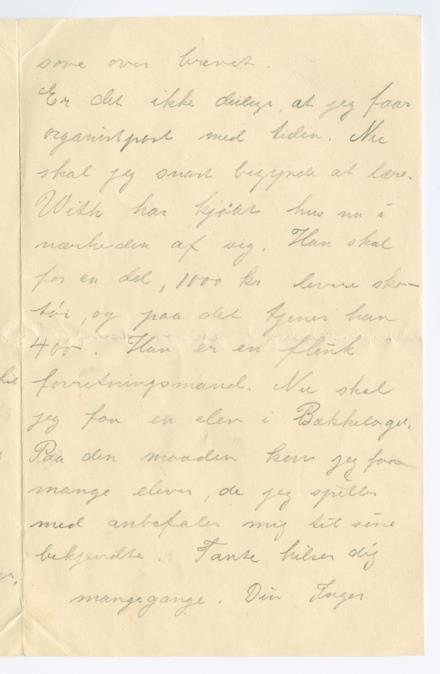 sove over brevet.
Er det ikke deilig, at jeg faar
organistpost med tiden. Nu
skal jeg snart begynde at lære.
Vith har kjøbt hus nu i
nærheden af sig. Han skal
for en del, 1000 kr levere sko-
tøi, og paa det tjener han
400. Han er en flink
forretningsmand. Nu skal
jeg faa en elev i Bækkelaget.
Paa den maaden kan jeg faa
mange elever, de jeg spiller
med anbefaler mig til sine
bekjendte. Tante hilser dig
mangegange. Din Inger.